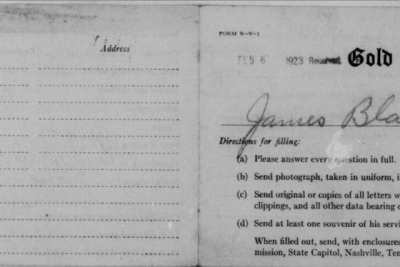 Address
FORM W-W-1
FEB 6 1923 Received Gold
James Bla
Directions for filling:
(a) Please answer every question in full.
(b) Send photograph, taken in uniform, i
(c) Send original or copies of all letters w
clippings, and all other data bearing o
(d) Send at least one souvenir of his servi
When filled out, send, with enclosures
mission, State Capitol, Nashville, Ten